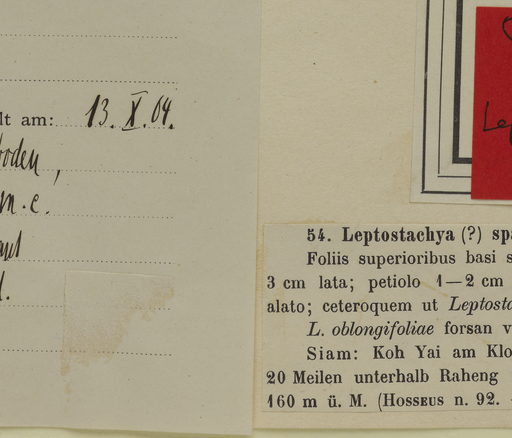 lt am: 13. X. 04.
boden,
m. e.
54. Leptostachya (?) spa
Foliis superioribus basi s
3 cm lata; petiolo 1—2 cm
alato; ceteroquem ut Leptosta
L. oblongifoliae forsan v
Siam: Koh Yai am Klo
20 Meilen unterhalb Raheng
160 m ü. M. (Hosseus n. 92.
Lep